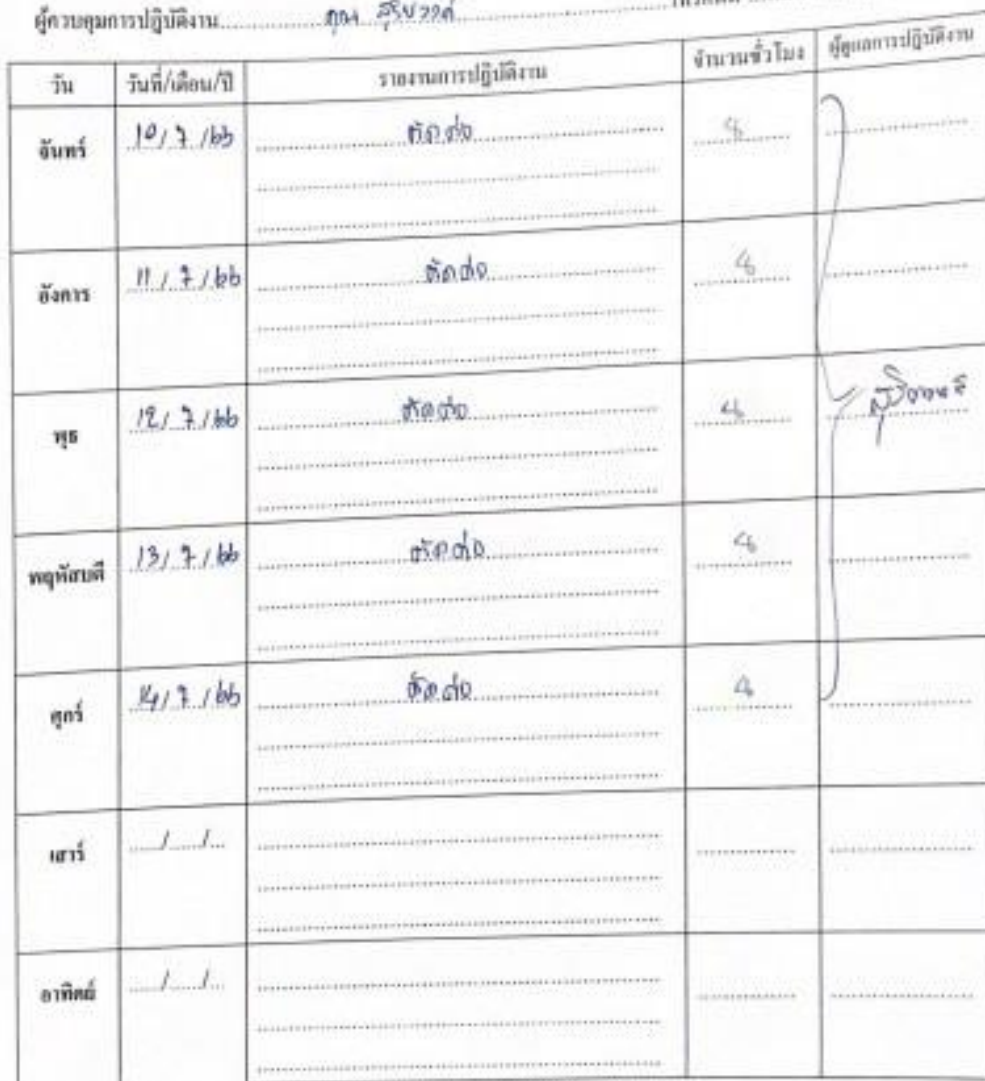 ผู้ควบคุมการปฏิบัติงาน คุณ
วัน วันที่/เดือน/ปี รายงานการปฏิบัติงาน จำนวนชั่วโมง ผู้ดูแลการปฏิบัติงาน
จันทร์ 10/7/66 ตัดต่อ 8
อังคาร 11/7/66 ตัดต่อ 8
พุธ 12/7/66 ตัดต่อ 8
พฤหัสบดี 13/7/66 ตัดต่อ 8
ศุกร์ 14/7/66 ตัดต่อ 8
เสาร์ / /
อาทิตย์ / /